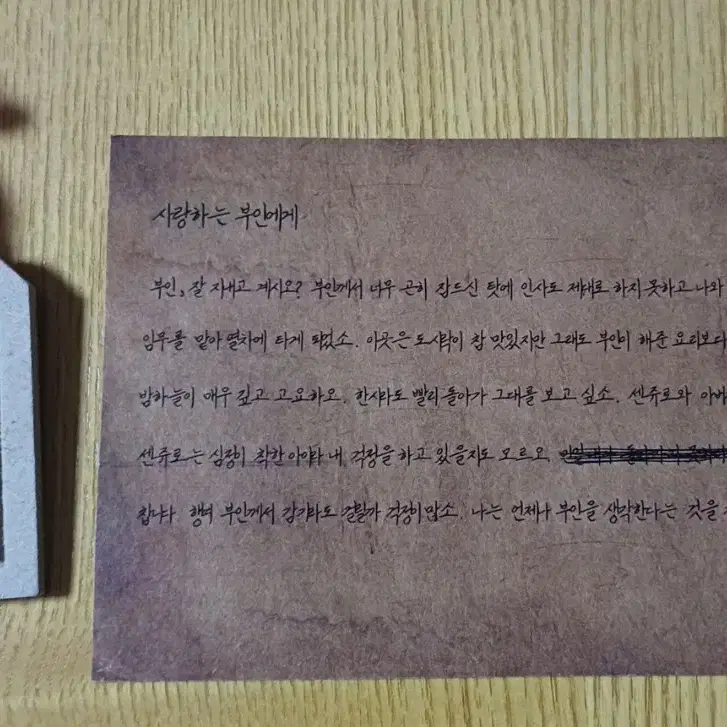 사랑하는 부인에게
부인, 잘 지내고 계시오? 부인께서 너무 곤히 잠드신 탓에 인사도 제대로 하지 못하고 나와
임무를 맡아 열차에 타게 되었소. 이곳은 도시락이 참 맛있지만 그래도 부인이 해준 요리보다
밤하늘이 매우 깊고 고요하오. 한시라도 빨리 돌아가 그대를 보고 싶소. 센쥬로와 아버
센쥬로는 심정이 착한 아이라 내 걱정을 하고 있을지도 모르오.
합니다 행여 부인께서 감기라도 걸릴까 걱정이 많소. 나는 언제나 부인을 생각한다는 것을